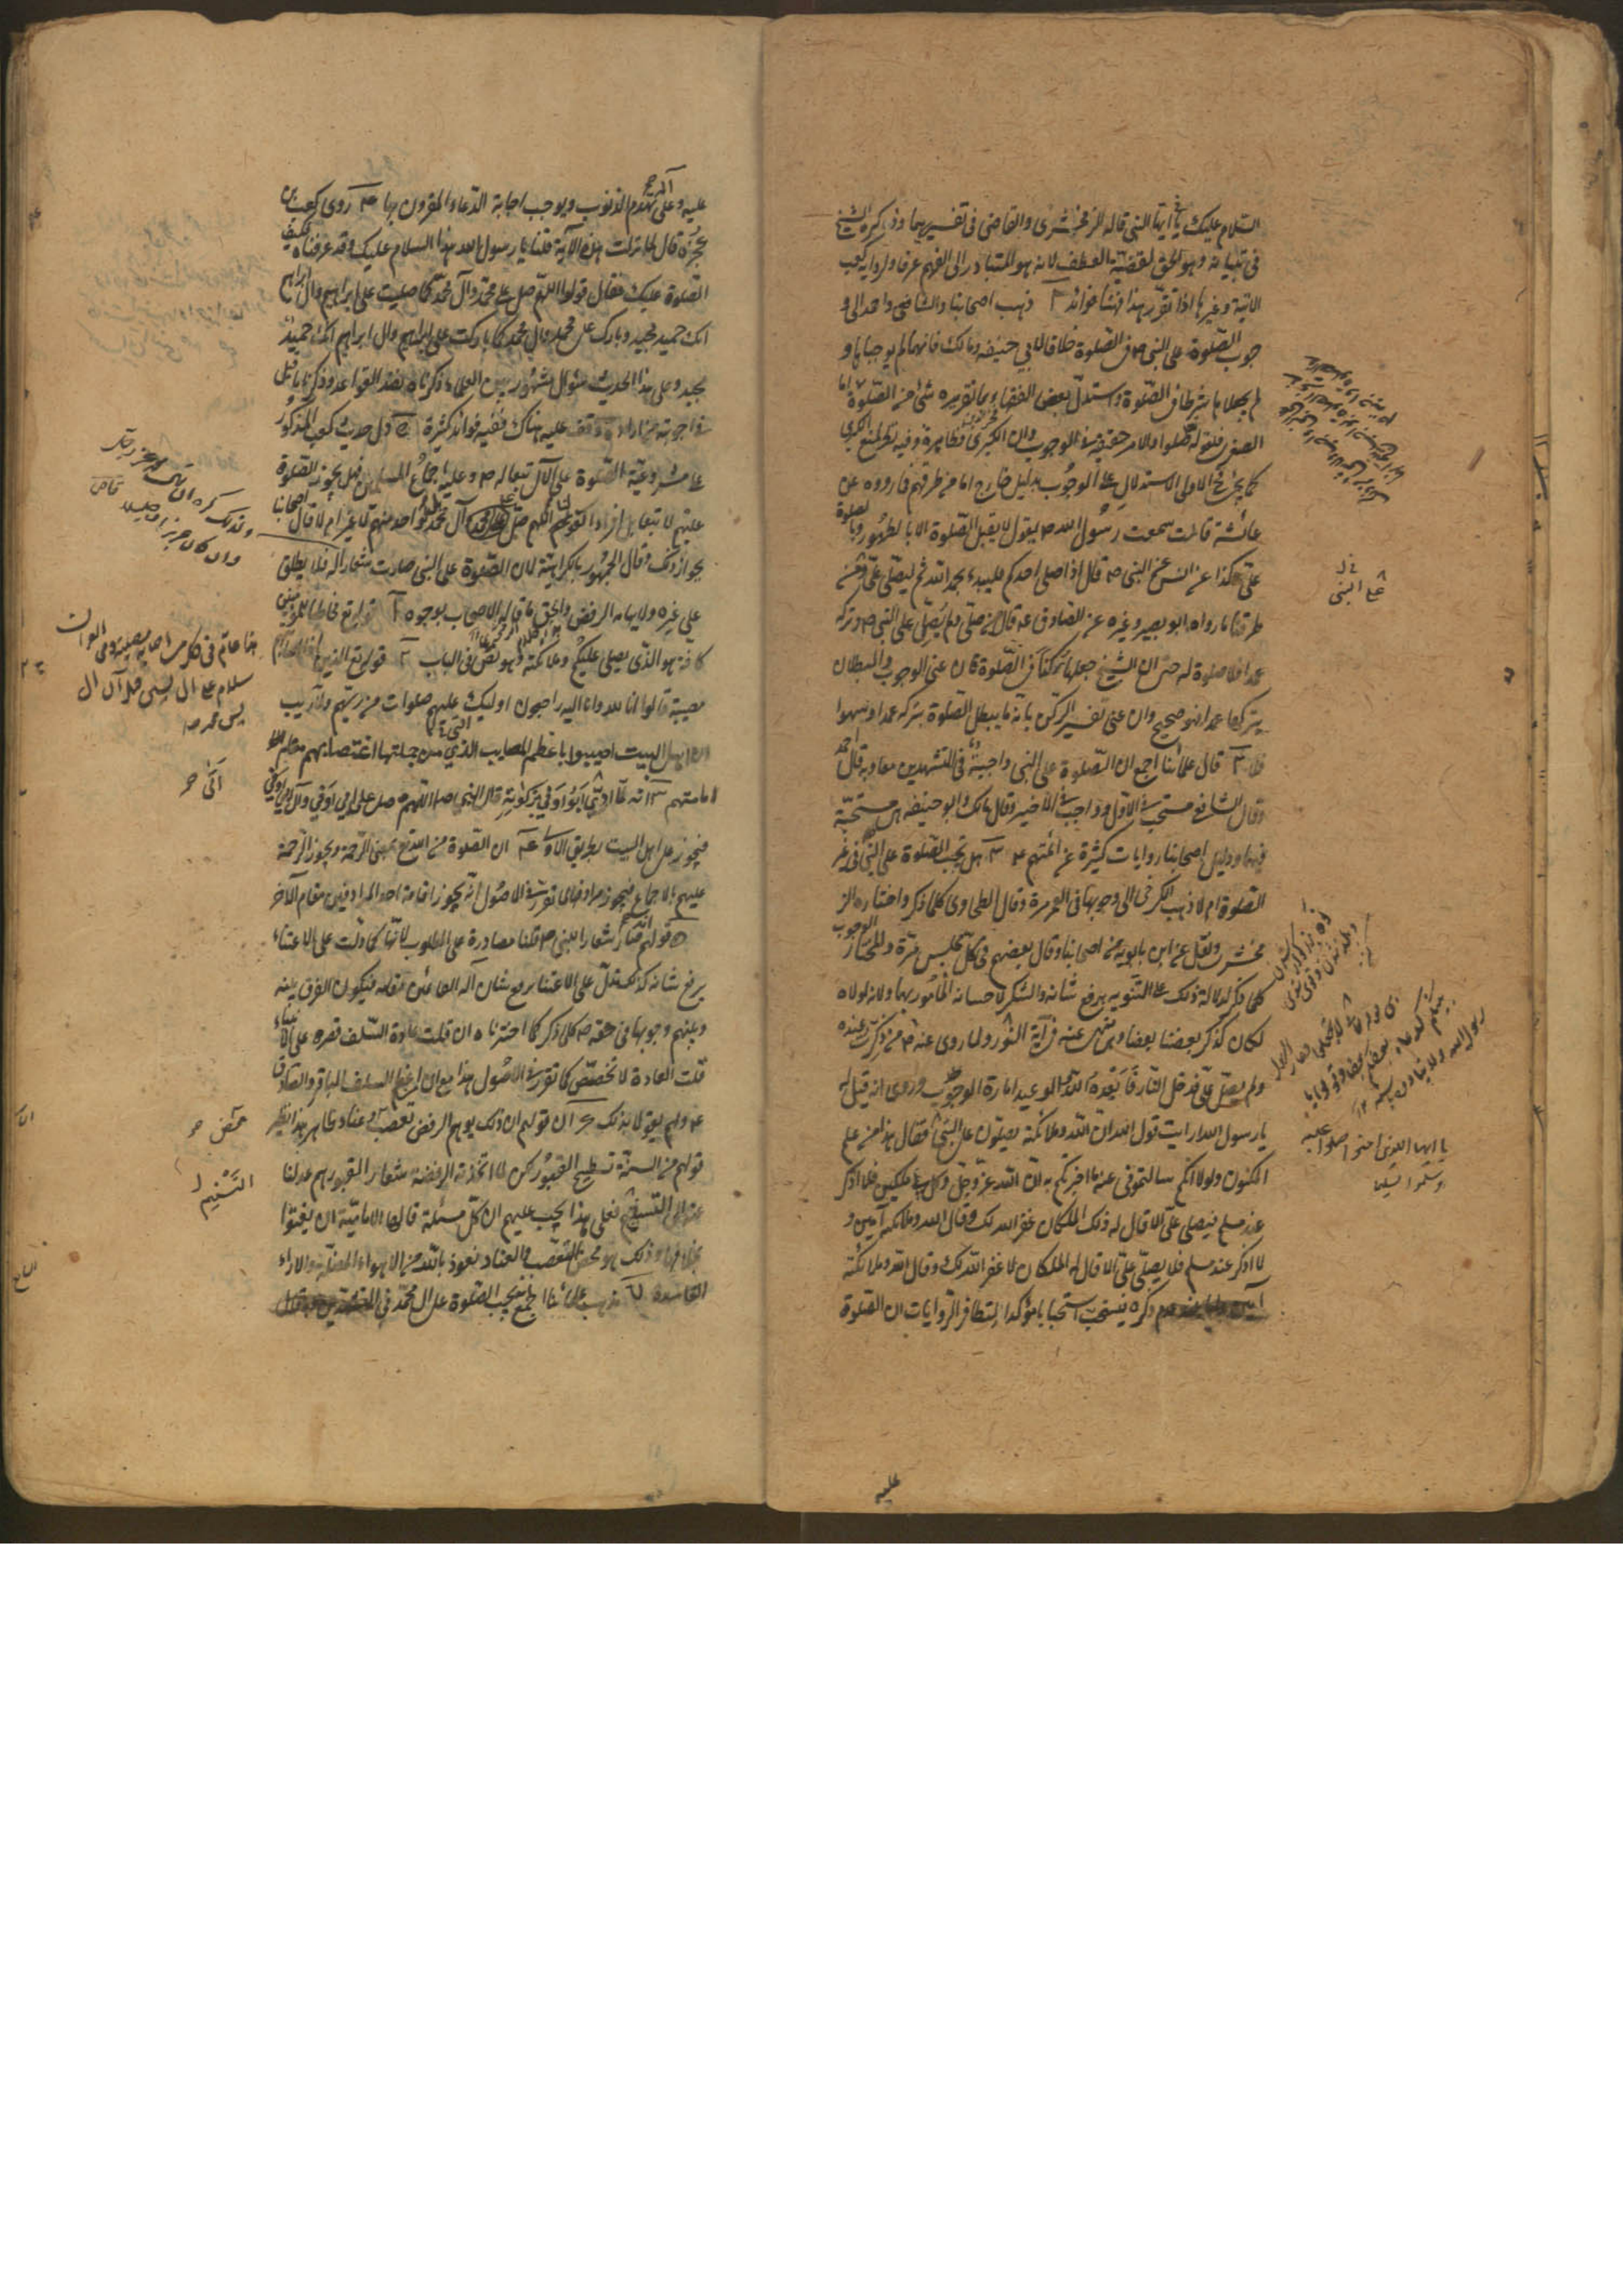 السّلام عليك يا ايّها النبي قاله الزمخشرى والقاضى فى تفسيريهما وذكره الشيخ
فى تبيانه وهو الحق لقضيّة العطف لانه هو المتبادر الى الفهم عرفا ولرواية كعب
الاتية وغيرها اذا تقرّر هذا فهنا فوائد ٢ ذهب اصحابنا والشافعى واحمد الى و
جوب الصّلوة على النبى ص فى الصّلوة خلافا لابي حنيفه ومالك فانهما لم يوجباها و
لم يجعلاها شرطا فى الصّلوة واستدلّ بعض الفقهاء بما تقريره شئ من الصّلوة
الصغرى فلقوله صلّوا والامر حقيقة فى الوجوب وان الكبرى فظاهرة وفيه نظر لمنع الكبرى
كما يجئ فى الاولى الاستدلال على الوجوب بدليل خارج اما من طرقهم فما رووه عن
عائشة قالت سمعت رسول الله ص يقول لا يقبل الصّلوة الا بالطهور وبالصلوة
علىّ وكذا عن انس عن النبى ص قال اذا صلى احدكم فليبدء بحمد الله ثم ليصلّى علىّ ومن
طرقنا ما رواه ابو بصير وغيره عن الصادق ع قال من صلّى ولم يُصَلّ على النبى ص وتركه
عمدا فلا صلوة له حتى ان الشيخ جعلها ركنا فى الصّلوة فان عنى الوجوب والبطلان
بتركها عمدا فهو صحيح وان عنى تفسير الركن بانه ما يبطل الصّلوة بتركه عمدا وسهوا
فلا ٣ قال علمائنا اجمع ان الصّلوة على النبى واجبة فى التشهدين معا وبه قال احمد
وقال الشافعى مستحب فى الاول وواجب فى الاخير وقال مالك وابو حنيفه هى مستحبّة
فيهما ودليل اصحابنا روايات كثيرة عن ائمتهم ع ٣ هل تجب الصّلوة على النّبى فى غير
الصّلوة ام لا ذهب الكرخى الى وجوبها فى العمر مرة وقال الطحاوى كلما ذكر واختاره الز
مخشرى ونقل عن ابن بابويه من اصحابنا وقال بعضهم فى كل مجلس مرّة والمختار الوجوب
كلما ذكر لدلالة ذلك على التنويه برفع شانه والشكر لاحسانه المأمور بهما ولانه لولاه
لكان كذكر بعضنا بعضا وهو منهى عنه فى آية النّور ولما روى عنه ص من ذكرت عنده
ولم يصلّ علىّ فدخل النّار فابعده الله والوعيد امارة الوجوب وروى انه قيل له
يا رسول الله ارايت قول الله ان الله وملائكته يصلّون على النبى فقال هذا من علم
المكنون ولولا انكم سالتمونى عنه ما اخبرتكم به انّ الله عزّ وجلّ وكل بى ملكين فلا اذكر
عند مسلم فيصلى علىّ الا قال له ذلك الملكان غفر الله لك وقال الله وملائكته آمين و
لا اذكر عند مسلم فلا يصلّى علىّ الا قال له الملكان لا غفر الله لك وقال الله وملائكته
آمين ذكره فيستحب استحبابا مؤكدا لتظافر الرّوايات ان الصّلوة
على النبى
يا ايها الذين آمنوا صلوا عليه
وسلموا تسليما
عليه
عليه وعلى آله تهدم الذنوب ويوجب اجابة الدّعاء المقرون بها ٣ روى كعب بن
عجرة قال لما نزلت هذه الآية قلنا يا رسول الله هذا السلام عليك قد عرفناه فكيف
الصّلوة عليك فقال قولوا اللهمّ صل على محمد وآل محمّد كما صليت على ابراهيم وال ابراهيم
انك حميد مجيد وبارك على محمد وال محمد كما باركت على ابراهيم وال ابراهيم انك حميد
مجيد وعلى هذا الحديث سؤال مشهور بين العلماء ذكرناه فى نضد القواعد وذكرنا ما قيل
فى اجوبته من اراده وقف عليه هناك ففيه فوائد كثيرة ٥ دل حديث كعب المذكور
على مشروعيّة الصّلوة على الآل تبعا له ص وعليه اجماع المسلمين فهل يجوز الصّلوة
عليهم لا تبعا بل افرادا كقولنا اللهم صلّ على آل محمّد او واحد منهم لا غير ام لا قال اصحابنا
بجواز ذلك وقال الجمهور بالكراهية لان الصّلوة على النبى صارت شعارا له فلا يطلق
على غيره ولايهامه الرفض والحق ما قاله الاصحاب لوجوه ٢ قوله تع مخاطبا للمؤمنين
كافة هو الذى يصلى عليكم وملائكته وهو نص فى الباب ٢ قوله تع الذين اذا اصابتهم
مصيبة قالوا انا لله وانا اليه راجعون اولئك عليهم صلوات من ربّهم ولا ريب
ان اهل البيت اصيبوا باعظم المصايب الذي من جملتها اغتصابهم مقام
امامتهم ٣ انه لمّا اتى ابو اوفى بزكوته قال النبى ص اللهم صل على ابى اوفى وآل ابى اوفى
فيجوز على اهل البيت بطريق الاولى ٤ ان الصّلوة من الله تع بمعنى الرّحمة ويجوز الرّحمة
عليهم بالاجماع فيجوز مرادفها لما تقرّر فى الاصول انّه يجوز اقامة احد المرادفين مقام الآخر
٥ قولهم انّها شعار للنبى ص قلنا مصادرة على المطلوب لانّها كما دلّت على الاعتناء
برفع شانه كذلك تدلّ على الاعتناء برفع شان آله القائمين مقامه فيكون الفرق بينه
وبينهم وجوبها فى حقه ص كلما ذكر كما اخترناه ان قلت عادة السّلف قصره على الانبياء
قلت العادة لا تخصّص كما تقرر فى الاصول هذا مع ان من اعظم السلف الباقر والصّادق
ع ولم يقولا بذلك ٦ ان قولهم ان ذلك يوهم الرفض تعصّب وعناد ظاهر نظير
قولهم من السنّة تسطيح القبور لكن لما اتّخذته الرفضة شعارا لقبورهم عدلنا
عنه الى التسنيم فعلى هذا يجب عليهم ان كلّ مسئلة قال بها الاماميّة ان يفتوا
بخلافها وذلك هو محض التعصّب والعناد نعوذ بالله من الاهواء المضلّة والاراء
الفاسدة ٧ مذهب علمائنا اجمع انّه تجب الصّلوة على آل محمّد فى التشهّدين وبه قال
ولذلك كره ان يقال محمد عز وجل
وان كان عزيزا وجليلا قاضى
سلام على ال يس قيل آل
يس محمد ص
اتى
محض
التسنيم